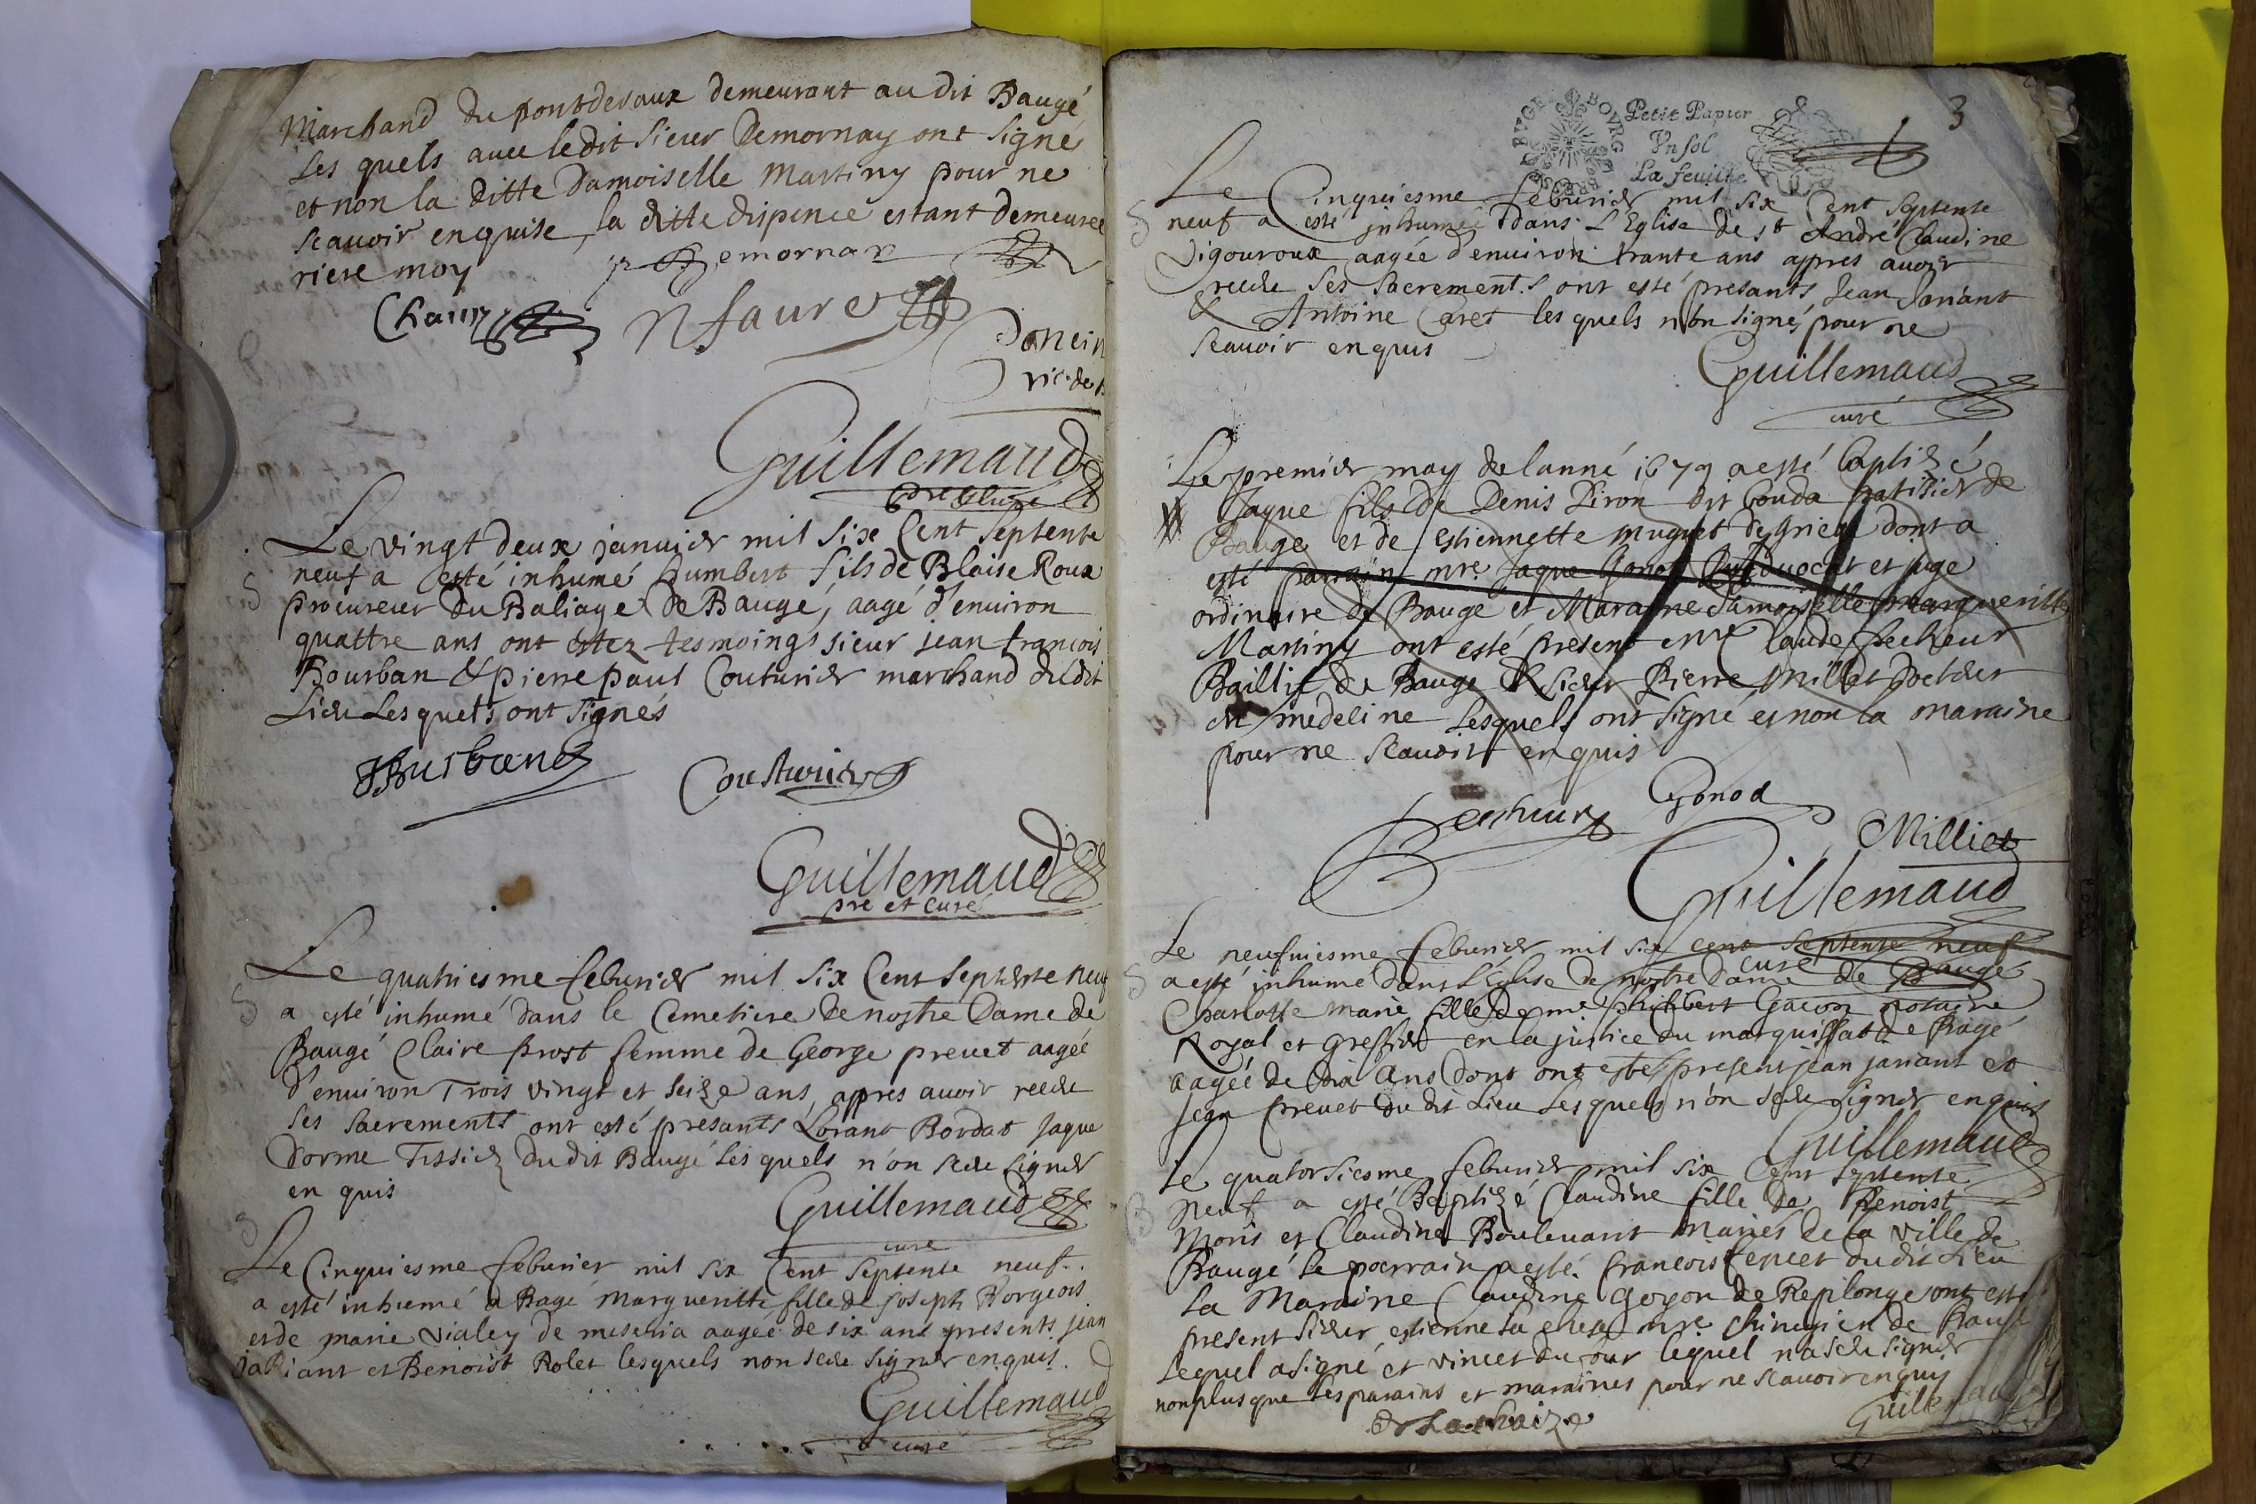 Marchand du pontdevaux demeurant au dit Baugé
Les quels avec ledit sieur Demornay ont signé
et non la ditte Damoiselle Martiny pour ne
scavoir enquise, la ditte dispence estant demeuree
riere moy
Demornay
Chain
N faure
Guillemaud
pre et curé
Le vingt deux janvier mil six Cent septente
neuf a esté inhumé humbert fils de Blaise Roux
procureur du Baliage de Baugé, aagé d'environ
quattre ans ont estez tesmoings sieur jean francois
Bourban & pierre paul Couturier marchand dudit
Lieu Lesquels ont signés
Cousturier
Guillemaud
pre et curé
Le quatriesme febvrier mil six Cent septente neuf
a esté inhumé dans le Cemetiere de nostre Dame de
Baugé Claire prost femme de George prevet aagée
d'environ Trois vingt et seize ans, appres avoir receu
ses sacrements ont esté presants Lorant Bordat Jaque
Dorme Tissier du dit Baugé les quels n'on sceu signer
en quis
Guillemaud
curé
Le Cinquiesme febvrier mil six Cent septente neuf
a esté inhumé a Bagé Margueritte fille de joseph Borgeois
et de marie vialey de miseria aagée de six ans presents jean
janiant et Benoist Rolet lesquels non sceu signer enquis.
Guillemaud
curé
3
BUGEY BOURG BRESSE
Petit Papier
Vn sol
La feuille
Le Cinquiesme febvrier mil six Cent septente
neuf a esté inhumée dans L'Eglise de st André Claudine
Vigouroux aagée d'environ trante ans appres avoir
receu ses sacrements ont esté presants Jean Janiant
& Antoine Caret les quels n'on signé, pour ne
scavoir enquis
Guillemaud
curé
Le premier may de lanné 1679 a esté baptizé
Jaque fils de Denis Piron dit bouda patisier de
Bauge et de Estiennette muguet de griege dont a
esté parrain mre. Jaque Gonod advocat et juge
ordinaire de Baugé et Maraine damoiselle margueritte
Martiny ont esté present mre Claude frecheur
Baillif de Bauge & sieur Pierre Millet Docteur
en medecine Lesquels ont signé et non la maraine
pour ne scavoir enquis
Gonod
Milliet
Guillemaud
curé
Le neufviesme febvrier mil six cent septente neuf
a esté inhumé dans L'Eglise de nostre dame de Baugé
Charlotte marie fille de mre. philibert Gacon notaire
Royal et greffier en la justice du marquissat de Bagé
aagée de dix ans dont ont esté present jean janiant et
jean prevet du dit Lieu Lesquels n'on sceu signer enquis
Guillemaud
Le quatorsiesme febvrier mil six Cent septente
neuf a esté Baptizé Claudine fille de Benoist
Moris et Claudine Boulevant mariés de la ville de
Baugé le parrain a esté. francois fevret du dit Lieu
La Maraine Claudine goyon de Replonge ont esté
present sieur estienne la chesa mre chirugien de Baugé
Lequel a signé et vincet du four lequel na sceu signer
non plus que les parains et maraines pour ne scavoir enquis
Guillemaud